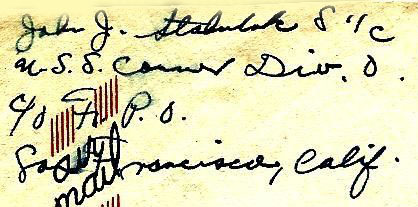 John J. Stobulak S 1/c
U.S.S. Conner Div. O.
c/o F. P. O.
San Francisco, Calif.
mail